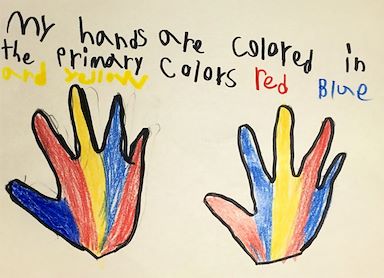 My hands are colored in
the primary colors red Blue
and yellow